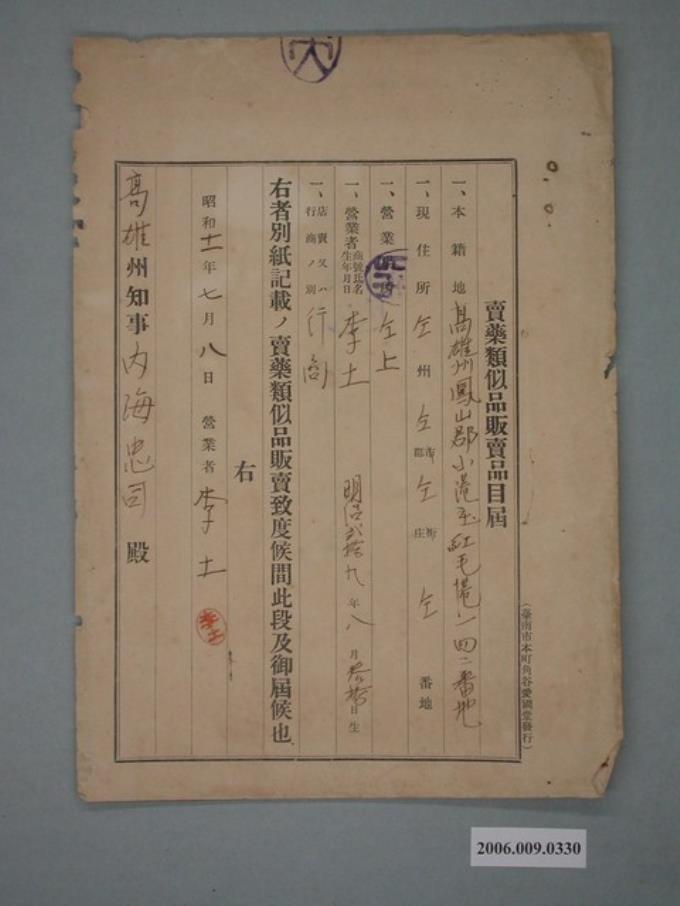 賣藥類似品販賣品目屆
一、本籍地 高雄州鳳山郡小港庄紅毛港一四二番地
一、現住所 仝州仝市郡仝街庄仝番地
一、營業 仝上
一、營業者 商號氏名 生年月日 李土 明治貳拾九年八月參拾日生
一、店賣又ハ行商ノ別 行商
右者別紙記載ノ賣藥類似品販賣致度候間此段及御屆候也
右
昭和十一年七月八日 營業者 李土
高雄州知事內海忠司殿
(臺南市本町角谷愛國堂發行)
2006.009.0330